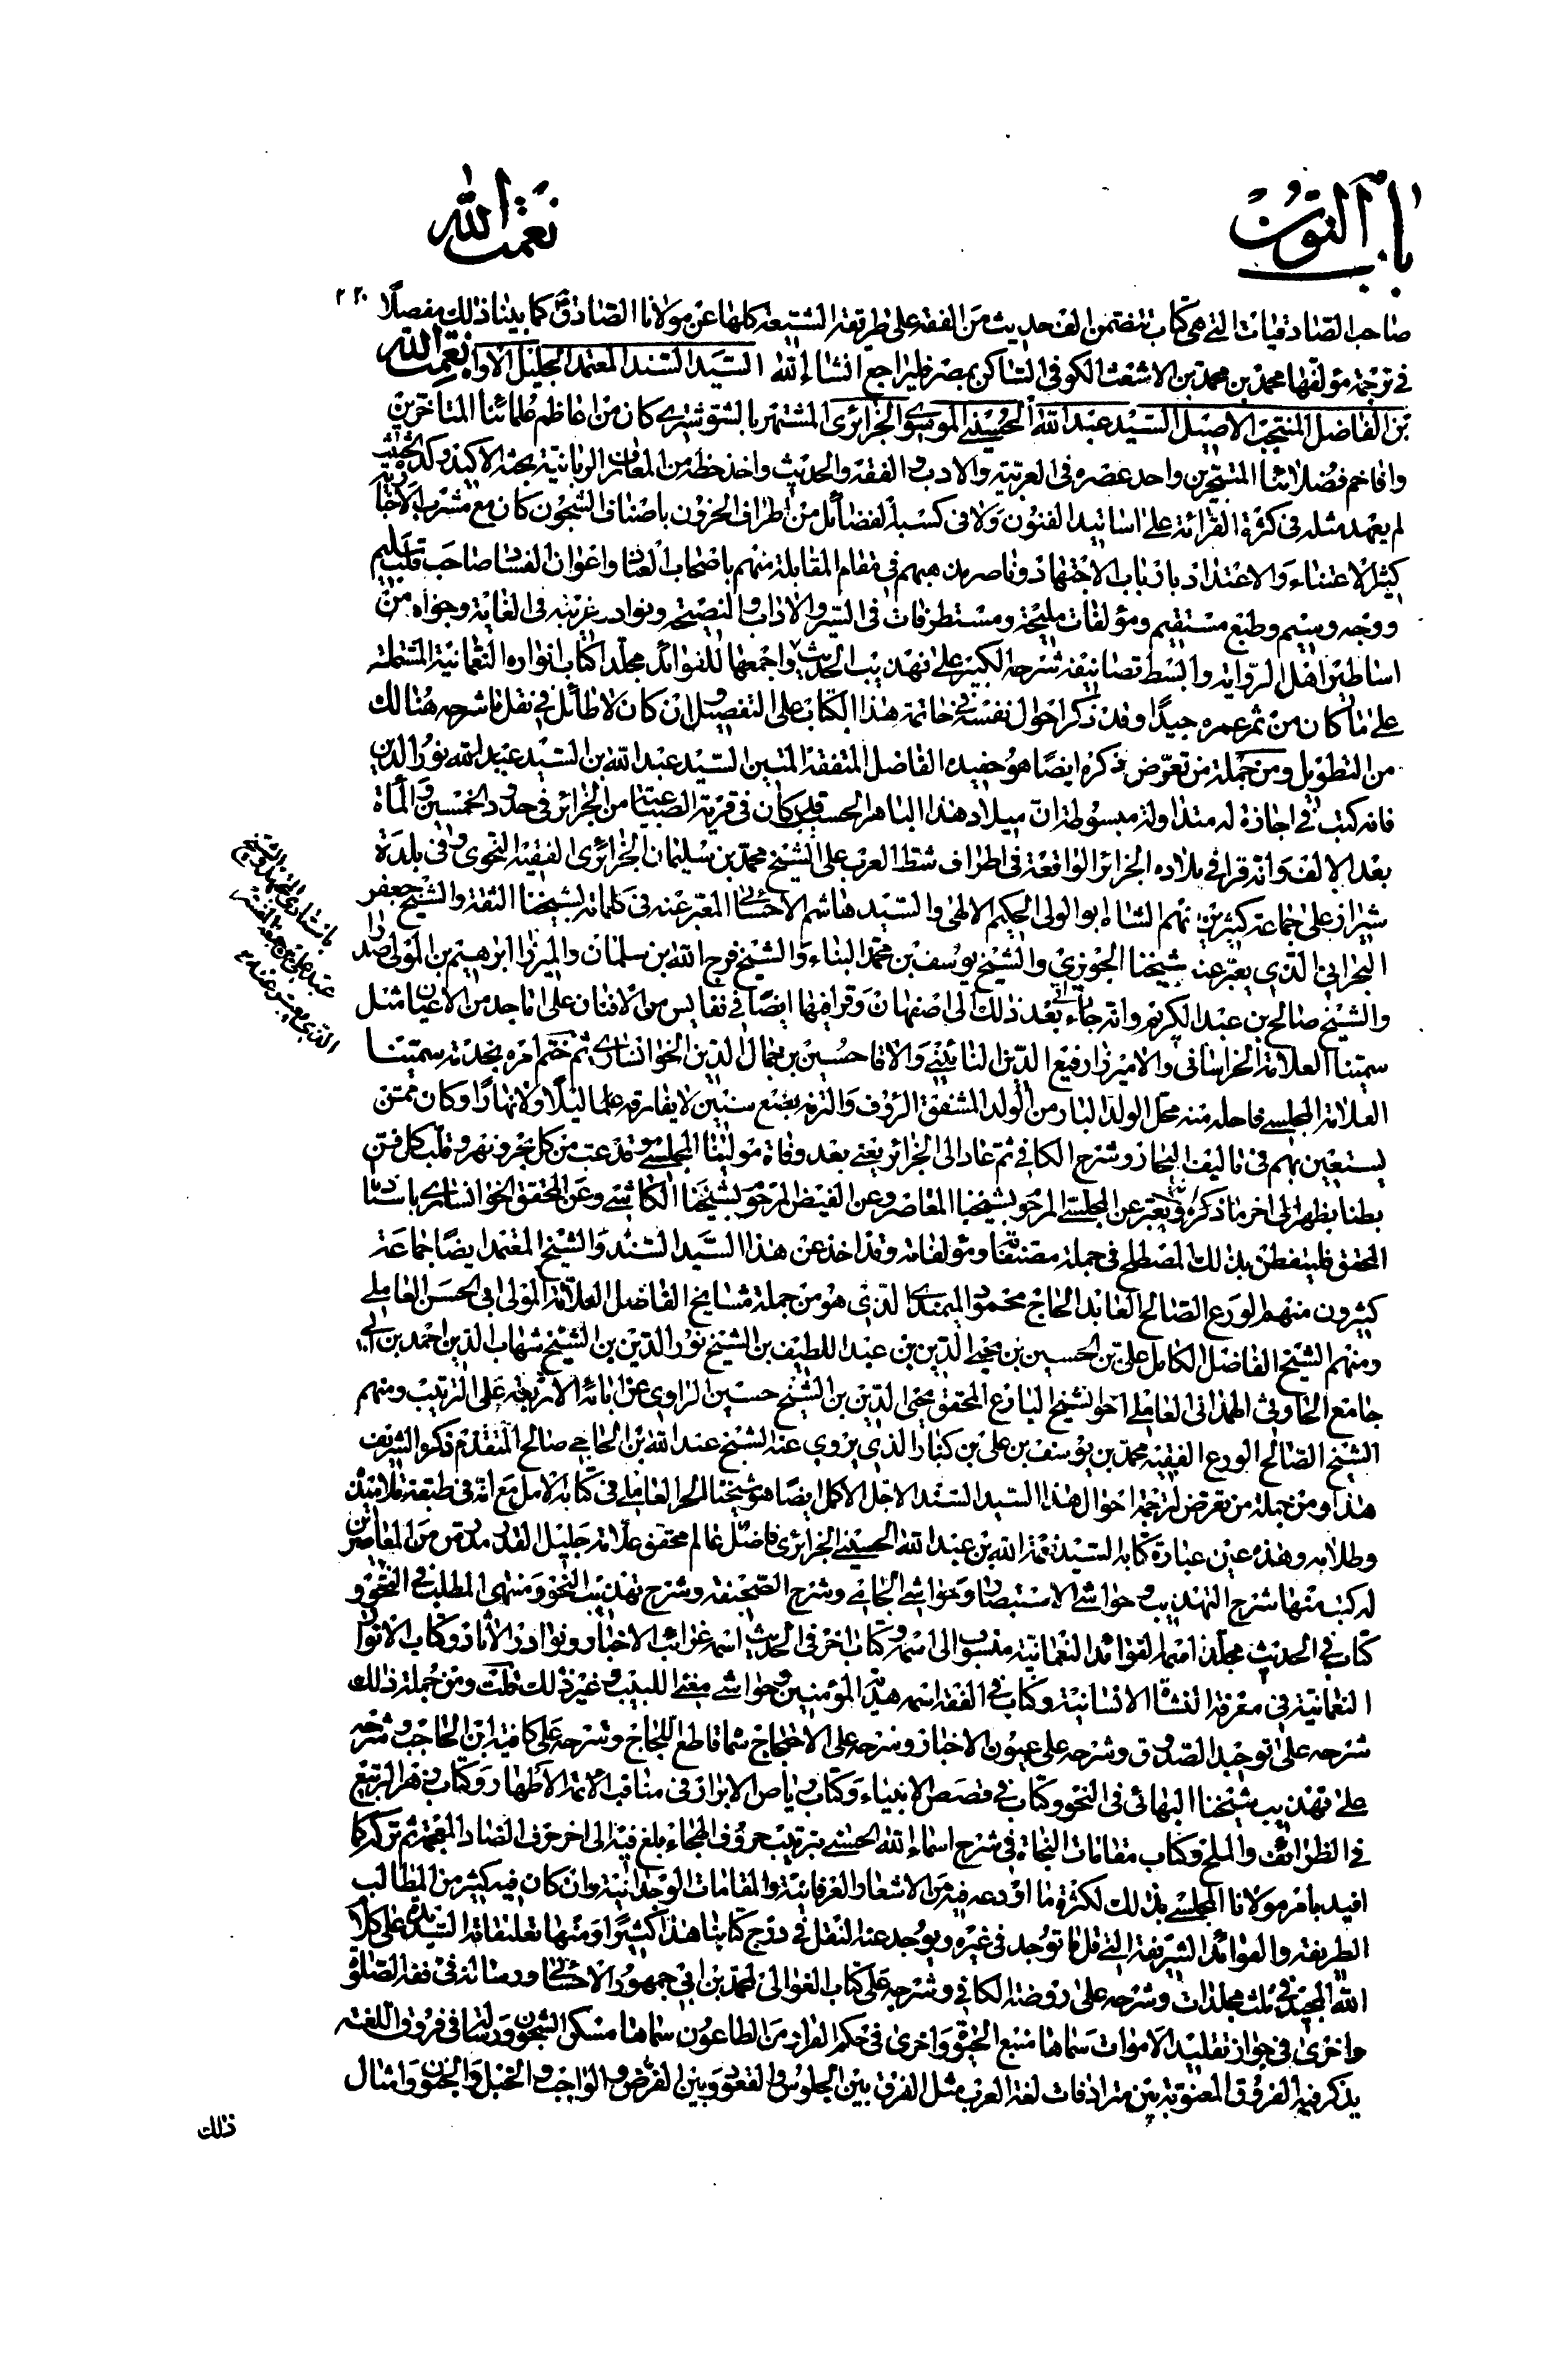 باب النون
نعمت الله
٢٢٠
صاحب الصادقيات التي هي كتاب يتضمن الف حديث من الفقه على طريقة الشيعة كلها عن مولانا الصادق ع كما بينا ذلك مفصلا
في ترجمة مؤلفها محمد بن محمد بن الاشعث الكوفي الساكن بمصر فليراجع انشاء الله السيد السند المعتمد الجليل الاواه نعمت الله
بن الفاضل المنتجب الاصيل السيد عبد الله الحسيني الموسوي الجزائرى المشتهر بالشوشترى كان من اعاظم علمائنا المتاخرين
وافاخم فضلائنا المتبحرين واحد عصره في العربية والادب والفقه والحديث واخذ حظه من المعارف الربانية بحثه الاكيد وكده الحثيث
لم يعهد مثله في كثرة القرائة على اساتيد الفنون ولا في كسبه الفضائل من اطراف الحزون باصناف الشجون كان مع مشربه الاخبارية
كثير الاعتناء والاعتداد بارباب الاجتهاد وناصر مذهبهم في مقام المقابلة منهم باصحاب العناد واعوان الفساد صاحب قلب سليم
ووجه وسيم وطبع مستقيم ومؤلفات مليحة ومستطرفات في السير والاداب والنصيحة ونوادر غريبة في الغاية وجواهر من
اساطير اهل الرواية وابسط تصانيفه شرحه الكبير على تهذيب الحديث واجمعها للفوائد مجلدا كتاب انواره النعمانية المشتملة
على ما كان من ثمر عمره جيدا وقد ذكر احوال نفسه في خاتمة هذا الكتاب على التفصيل وان كان لا طائل في نقل ما شرحه هنالك
من التطويل ومن جملة من تعرض لذكره ايضا هو حفيده الفاضل المتفقه المتين السيد عبد الله بن السيد عبد الله نور الدين
فانه كتب في اجازة له متداولة مبسوطة ان ميلاد هذا الباهر الحسب قد كان في قرية الصباغية من الجزائر في حدود الخمسين والمأة
بعد الالف وانه قرا في بلاده الجزائر الواقعة في اطراف شط العرب على الشيخ محمد بن سليمان الجزائرى الفقيه النحوى وفي بلدة
شيراز على جماعة كثيرين منهم الشاه ابو الولى الحكيم الالهى والسيد هاشم الاحسائى المعبر عنه في كلماته بشيخنا الثقة والشيخ جعفر
البحراني الذي يعبر عنه بشيخنا الحويزي والشيخ يوسف بن محمد البناء والشيخ فرج الله بن سلمان والميرزا ابرهيم بن المولى صدرا
والشيخ صالح بن عبد الكريم وانه جاء بعد ذلك الى اصفهان وقرا فيها ايضا في نفايس من الافنان على اماجد من الاعيان مثل
سمينا العلامة الخراساني والاميرزا رفيع الدين النائيني والاقا حسين بن جمال الدين الخوانسارى ثم ختم امره بخدمة سمينا
العلامة المجلسي فاحله منه محل الولد البار من الولد المشفق الرؤف والتزمه بضع سنين لا يفارقه غالبا ليلا ولا نهارا وكان ممن
يستعين بهم في تاليف البحار وشرح الكافي ثم عاد الى الجزائر يعني بعد وفاة مولينا المجلسي وقد عب من كل بحر ونهر وقلب كل فن
بطنا بظهر الى اخر ما ذكره ويعبر عن المجلسي المرحوم بشيخنا المعاصر وعن الفيض المرحوم بشيخنا الكاشي وعن المحقق الخوانسارى باستادنا
المحقق فليتفطن بذلك المصطلح في جملة مصنفاته ومؤلفاته وقد اخذ عن هذا السيد السند والشيخ المعتمد ايضا جماعة
كثيرون منهم الورع الصالح العابد الحاج محمود الميمندى الذي هو من جملة مشايخ الفاضل العلامة المولى ابي الحسن العاملي
ومنهم الشيخ الفاضل الكامل على بن الحسين بن محيي الدين بن عبد اللطيف بن الشيخ نور الدين بن الشيخ شهاب الدين احمد بن ابي
جامع الحاوثى الهمداني العاملي اخو الشيخ البارع المحقق محيى الدين بن الشيخ حسين الراوي عن ابائه الاربعة على الترتيب ومنهم
الشيخ الصالح الورع الفقيه محمد بن يوسف بن على بن كنبار الذي يروي عنه الشيخ عبد الله بن الحاجي صالح المتقدم ذكره الشريف
هذا ومن جملة من تعرض لترجمة احوال هذا السيد السند الاجل الاكمل ايضا هو شيخنا الحر العاملي في كتابه الامل مع انه في طبقة تلاميذه
وطلابه وهذه عين عبارة كتابه السيد نعمة الله بن عبد الله الحسيني الجزائرى فاضل عالم محقق علامة جليل القدر مدرس من المعاصرين
له كتب منها شرح التهذيب وحواشي الاستبصار وحواشي الجامي وشرح الصحيفة وشرح تهذيب النحو ومنتهى المطلب في النحو و
كتاب في الحديث مجلد اسمه الفوائد النعمانية منسوب الى اسمه وكتاب اخر في الحديث اسمه غرائب الاخبار ونوادر الاثار وكتاب الانوار
النعمانية في معرفة النشأة الانسانية وكتاب في الفقه اسمه هدية المؤمنين وحواشي مغنى اللبيب وغير ذلك قلت ومن جملة ذلك
شرحه على توحيد الصدوق وشرحه على عيون الاخبار وشرحه على الاحتجاج سماه قاطع اللجاج وشرحه على كافية ابن الحاجب وشرحه
على تهذيب شيخنا البهائي في النحو وكتاب في قصص الانبياء وكتاب رياض الابرار في مناقب الائمة الاطهار وكتاب زهر الربيع
في الظرائف والملح وكتاب مقامات النجاة في شرح اسماء الله الحسنى بترتيب حروف الهجاء بلغ فيه الى اخر حرف الضاد المعجمة ثم تركه كما
افيد بامر مولانا المجلسي بذلك لكثرة ما اودعه فيه من الاشعار العرفانية والمقامات الوجدانية وان كان فيه كثير من المطالب
الطريفة والفوائد الشريفة التي قل ما توجد في غيره ويوجد عنه النقل في درج كتابنا هذا كثيرا ومنها تعليقاته السديدة على كلام
الله المجيد في ثلث مجلدات وشرحه على روضة الكافي وشرحه على كتاب الغوالى لمحمد بن ابي جمهور الاحسائى ورسالة في فقه الصلوة
واخرى في جواز تقليد الاموات سماها منبع الحيوة واخرى في حكم الفرار من الطاعون سماها مسكن الشجون ورسالة في فروق اللغة
يذكر فيه الفروق المعنوية بين مترادفات لغة العرب مثل الفرق بين الجلوس والقعود وبين الفرض والواجب والخبل والجنون وامثال
ذلك